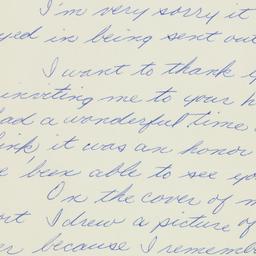 I'm very sorry it
yed in being sent out
I want to thank y
inviting me to your h
had a wonderful time
ink it was an honor
e been able to see yo
On the cover of m
ort I drew a picture of
er because I remembe